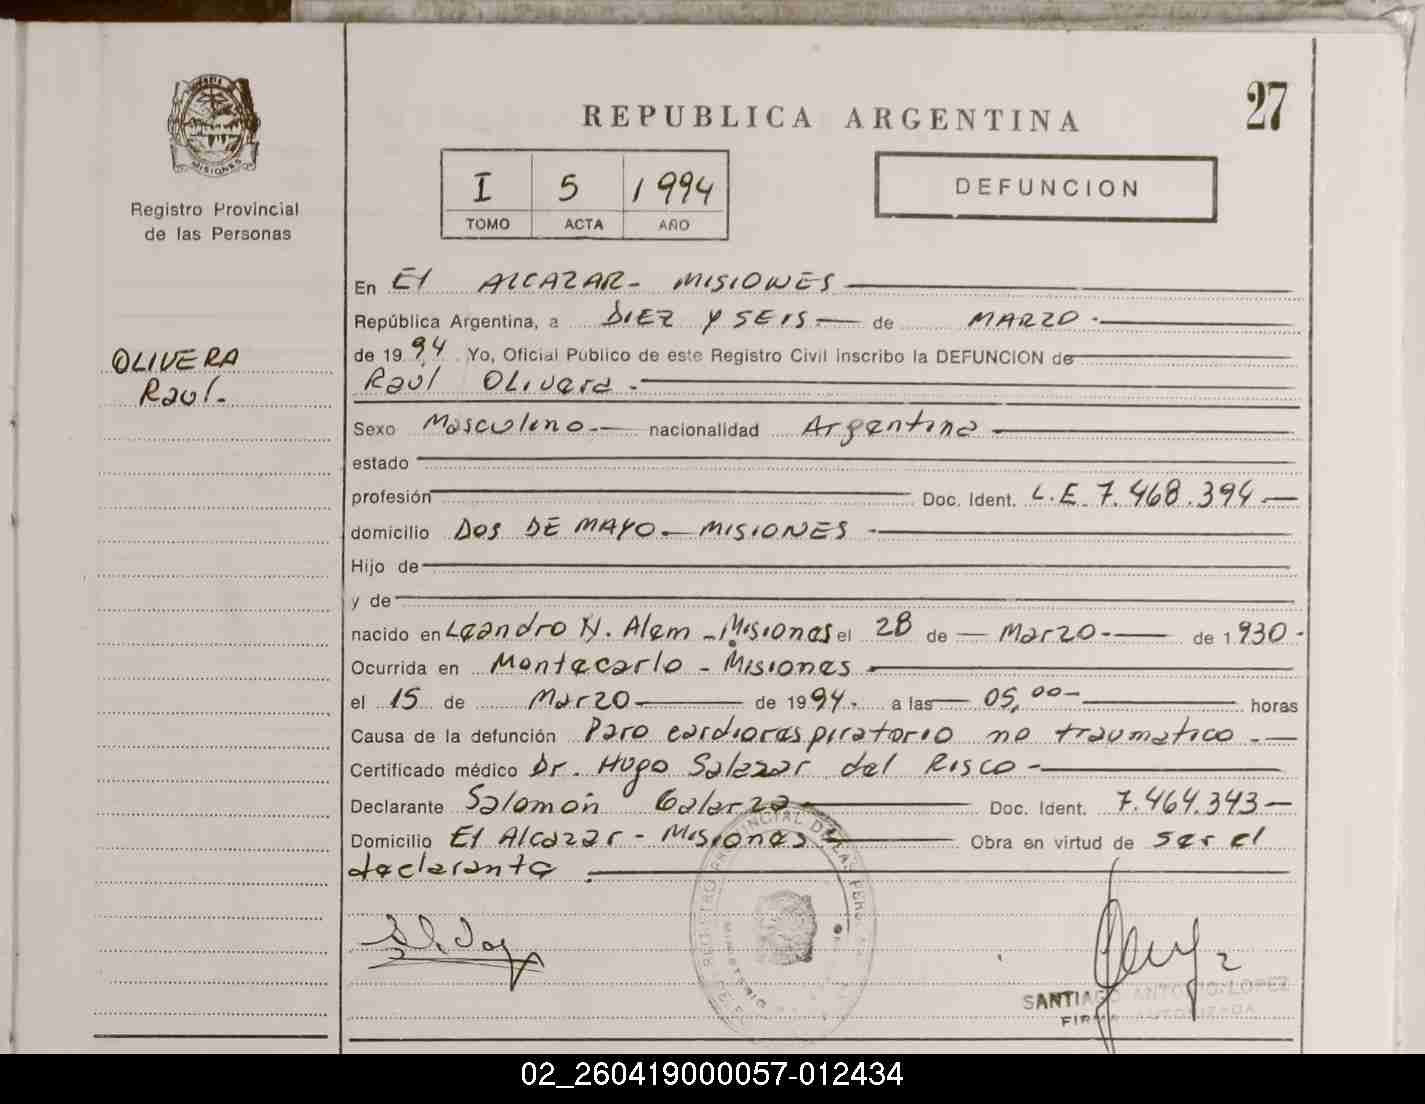 MISIONES
Registro Provincial
de las Personas
OLIVERA
Raúl.-
27
REPUBLICA ARGENTINA
I 5 1994
TOMO ACTA AÑO
DEFUNCION
En El ALCAZAR- MISIONES
República Argentina, a DIEZ Y SEIS.- de MARZO.-
de 1994. Yo, Oficial Público de este Registro Civil inscribo la DEFUNCION de
Raúl Olivera.-
Sexo Masculino.- nacionalidad Argentina-
estado
profesión Doc. Ident. L.E. 7.468.394.-
domicilio DOS DE MAYO.- MISIONES-
Hijo de
y de
nacido en Leandro N. Alem - Misiones el 28 de - Marzo.- de 1930.-
Ocurrida en Montecarlo - Misiones
el 15 de Marzo de 1994. a las 05,00- horas
Causa de la defunción Paro cardiorespiratorio no traumatico.-
Certificado médico Dr. Hugo Salazar del Risco-
Declarante Salomón Galarza Doc. Ident. 7.464.343-
Domicilio El Alcazar - Misiones Obra en virtud de ser el
declarante
REGISTRO PROVINCIAL DE LAS PERS
MINISTERIO
SANTIAGO ANTONIO LOPEZ
FIRMA AUTORIZADA
02_260419000057-012434